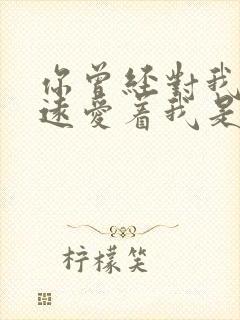 你曾經對我
遠愛着我是
柠檬笑